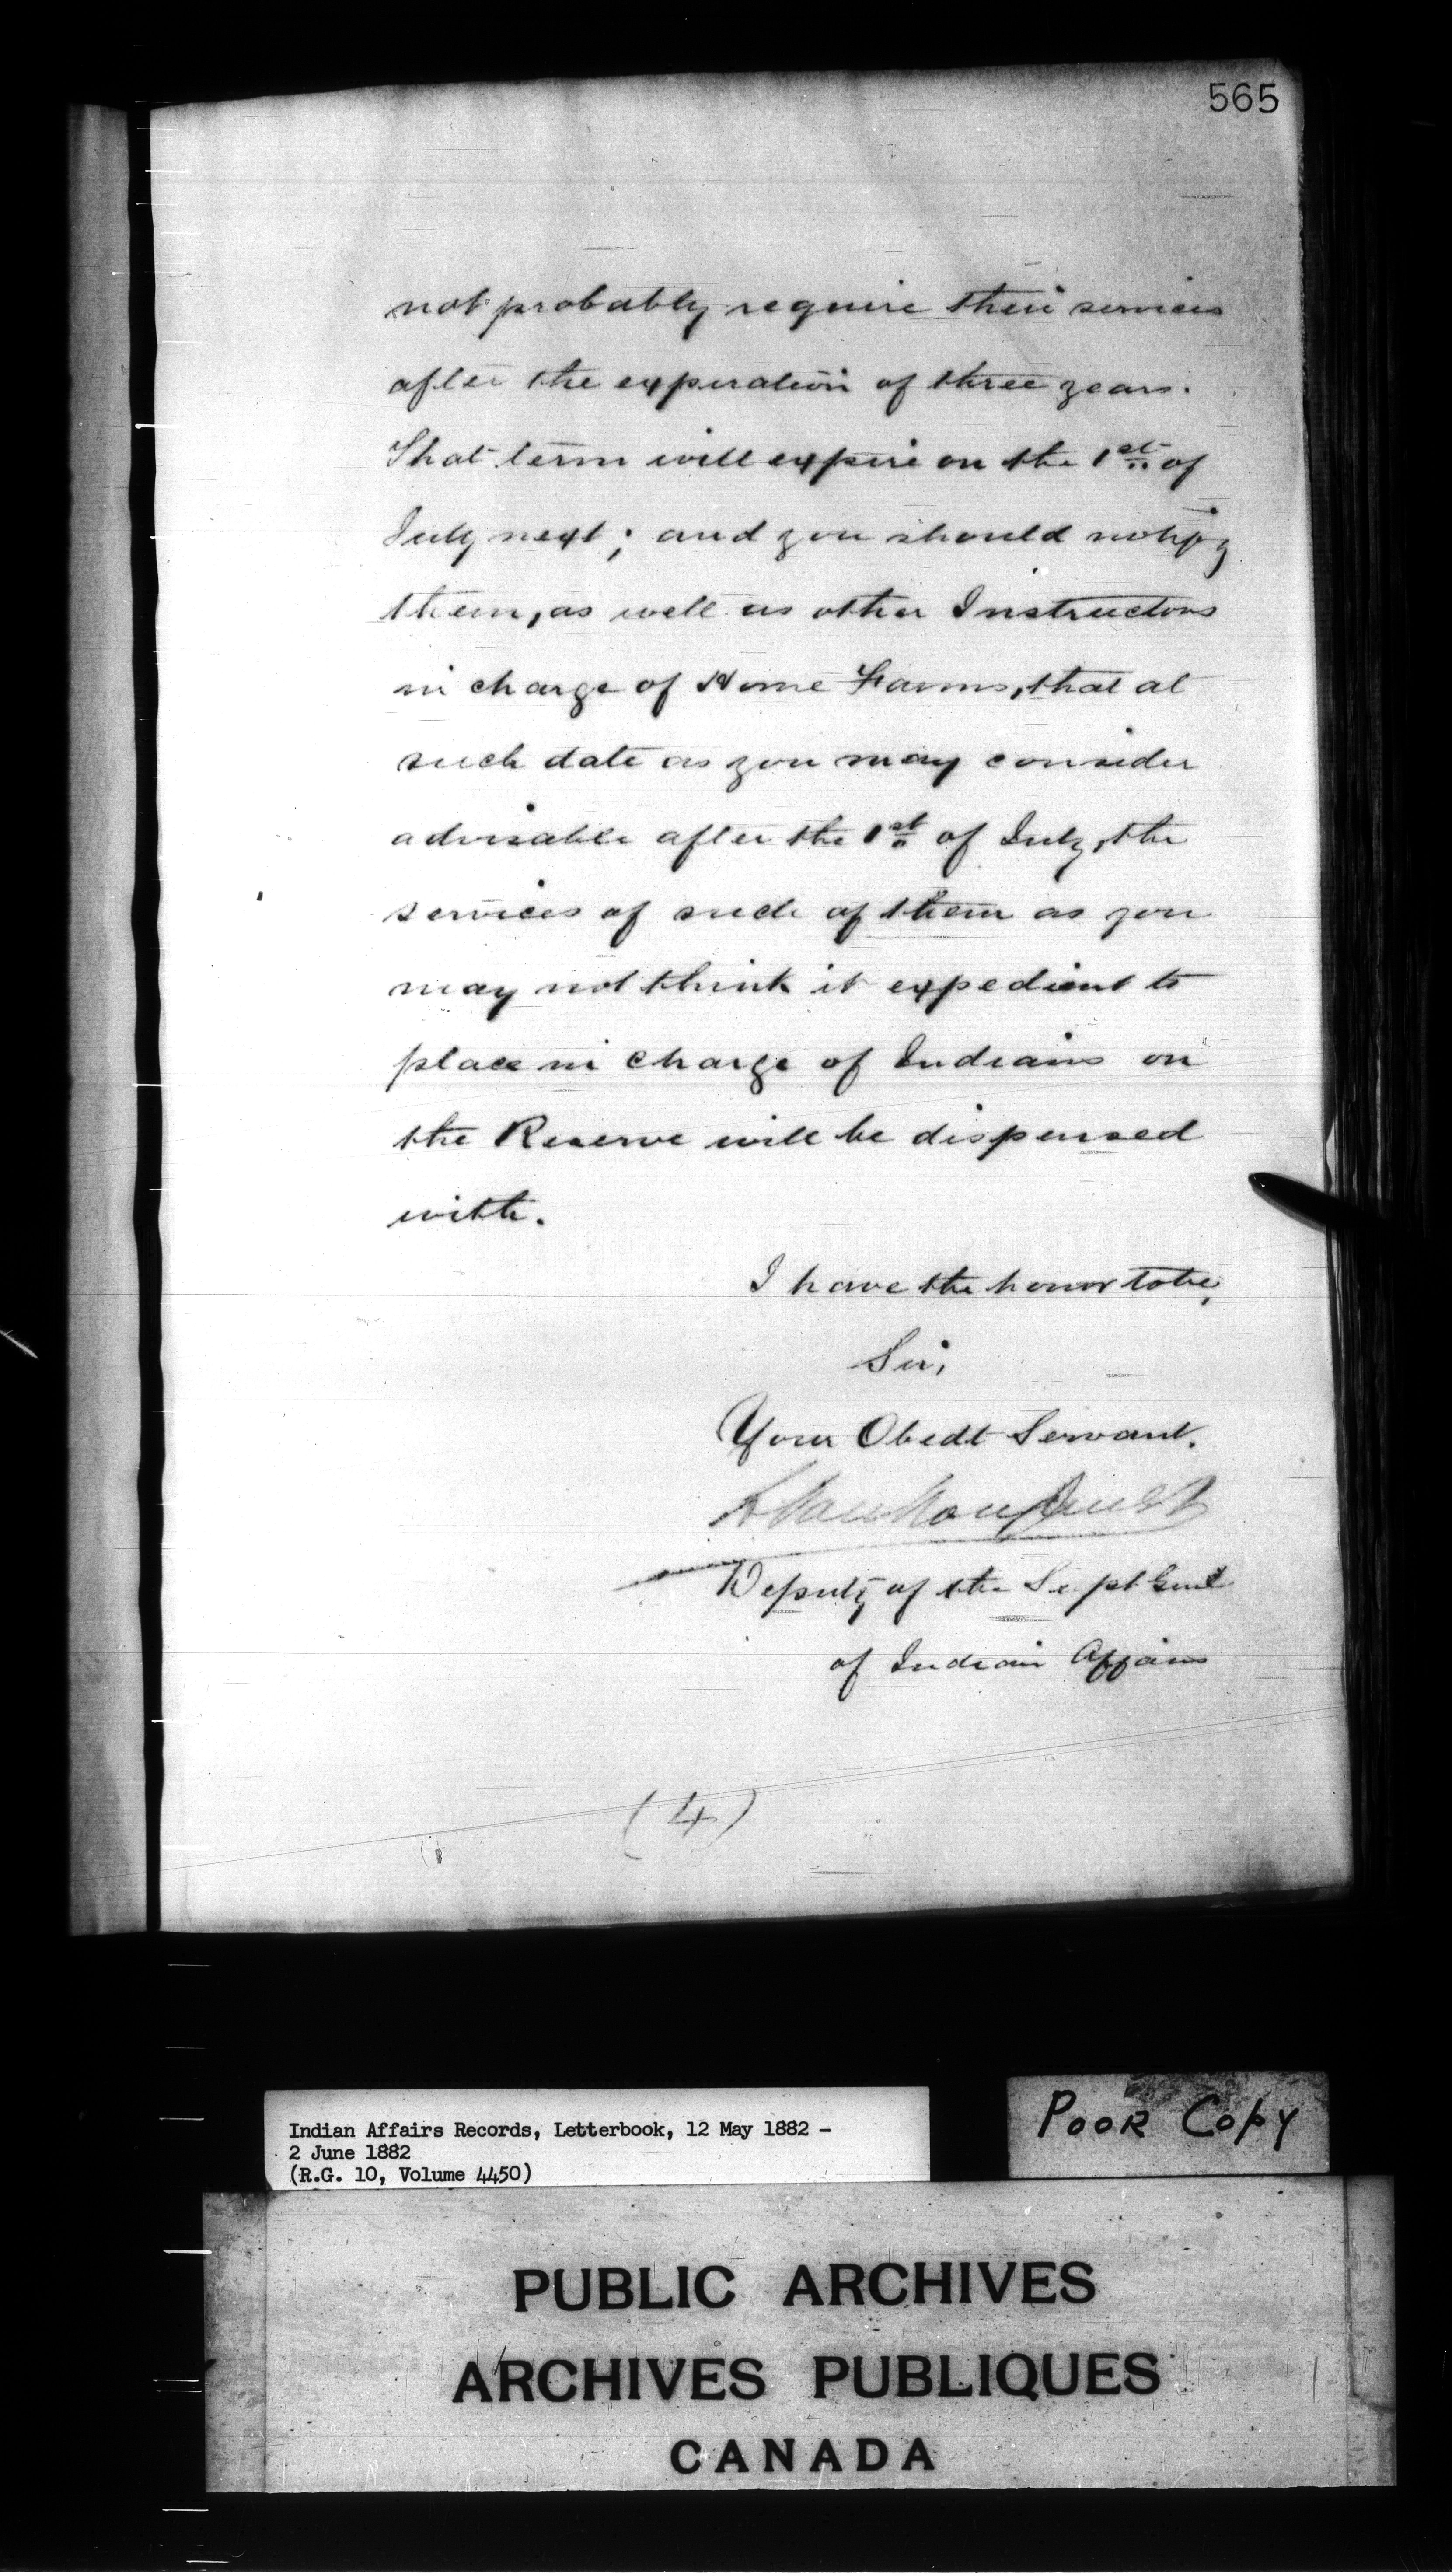 565
not probably require their services
after the expiration of three years.
That term will expire on the 1st of
July next; and you should notify
them, as well as other Instructors
in charge of Home Farms, that at
such date as you may consider
advisable after the 1st of July, the
services of such of them as you
may not think it expedient to
place in charge of Indians on
the Reserve will be dispensed
with.
I have the honor to be,
Sir,
Your Obedt Servant.
L VanKoughnet
Deputy of the Supt Genl
of Indian Affairs
(4)
Indian Affairs Records, Letterbook, 12 May 1882 -
2 June 1882
(R.G. 10, Volume 4450)
POOR COPY
PUBLIC ARCHIVES
ARCHIVES PUBLIQUES
CANADA